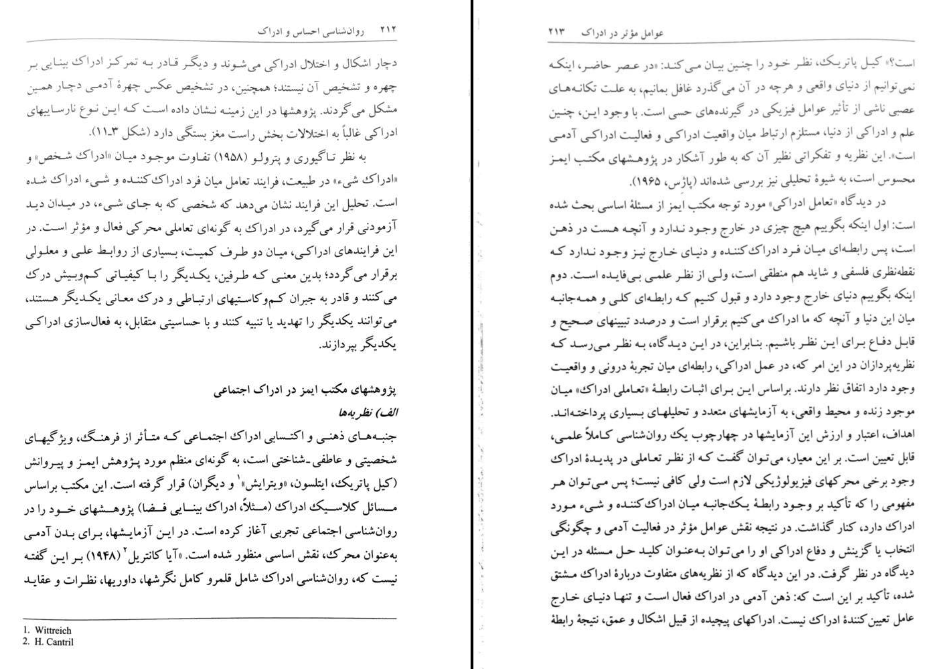 ۲۱۲ روان‌شناسی احساس و ادراک
دچار اشکال و اختلال ادراکی می‌شوند و دیگر قادر به تمرکز ادراک بینایی بر
چهره و تشخیص آن نیستند؛ همچنین، در تشخیص عکس چهرهٔ آدمی دچار همین
مشکل می‌گردند. پژوهشها در این زمینه نشان داده است که این نوع نارساییهای
ادراکی غالباً به اختلالات بخش راست مغز بستگی دارد (شکل ۳ـ۱۱).
به نظر تاگیوری و پترولو (۱۹۵۸) تفاوت موجود میان «ادراک شخص» و
«ادراک شیء» در طبیعت، فرایند تعامل میان فرد ادراک‌کننده و شیء ادراک شده
است. تحلیل این فرایند نشان می‌دهد که شخصی که به جای شیء، در میدان دید
آزمودنی قرار می‌گیرد، در ادراک به گونه‌ای تعاملی محرکی فعال و مؤثر است. در
این فرایندهای ادراکی، میان دو طرف کمیت، بسیاری از روابط علی و معلولی
برقرار می‌گردد؛ بدین معنی که طرفین، یکدیگر را با کیفیاتی کم‌وبیش درک
می‌کنند و قادر به جبران کم‌وکاستیهای ارتباطی و درک معانی یکدیگر هستند،
می‌توانند یکدیگر را تهدید یا تنبیه کنند و با حساسیتی متقابل، به فعال‌سازی ادراکی
یکدیگر بپردازند.
پژوهشهای مکتب ایمز در ادراک اجتماعی
الف) نظریه‌ها
جنبه‌های ذهنی و اکتسابی ادراک اجتماعی که متأثر از فرهنگ، ویژگیهای
شخصیتی و عاطفی ـ شناختی است، به گونه‌ای منظم مورد پژوهش ایمز و پیروانش
(کیل پاتریک، ایتلسون، «ویترایش»۱ و دیگران) قرار گرفته است. این مکتب براساس
مسائل کلاسیک ادراک (مثلاً، ادراک بینایی فضا) پژوهشهای خود را در
روان‌شناسی اجتماعی تجربی آغاز کرده است. در این آزمایشها، برای بدن آدمی
به‌عنوان محرک، نقش اساسی منظور شده است. «آیا کانتریل۲ (۱۹۴۸) بر این گفته
نیست که، روان‌شناسی ادراک شامل قلمرو کامل نگرشها، داوریها، نظرات و عقاید
1. Wittreich
2. H. Cantril
عوامل مؤثر در ادراک ۲۱۳
است؟» کیل پاتریک، نظر خود را چنین بیان می‌کند: «در عصر حاضر، اینکه
نمی‌توانیم از دنیای واقعی و هرچه در آن می‌گذرد غافل بمانیم، به علت تکانه‌های
عصبی ناشی از تأثیر عوامل فیزیکی در گیرنده‌های حسی است. با وجود این، چنین
علم و ادراکی از دنیا، مستلزم ارتباط میان واقعیت ادراکی و فعالیت ادراکی آدمی
است». این نظریه و تفکراتی نظیر آن که به طور آشکار در پژوهشهای مکتب ایمز
محسوس است، به شیوهٔ تحلیلی نیز بررسی شده‌اند (پاژس، ۱۹۶۵).
در دیدگاه «تعامل ادراکی» مورد توجه مکتب ایمز از مسئلهٔ اساسی بحث شده
است: اول اینکه بگوییم هیچ چیزی در خارج وجود ندارد و آنچه هست در ذهن
است، پس رابطه‌ای میان فرد ادراک‌کننده و دنیای خارج نیز وجود ندارد که
نقطه‌نظری فلسفی و شاید هم منطقی است، ولی از نظر علمی بی‌فایده است. دوم
اینکه بگوییم دنیای خارج وجود دارد و قبول کنیم که رابطه‌ای کلی و همه‌جانبه
میان این دنیا و آنچه که ما ادراک می‌کنیم برقرار است و درصدد تبیینهای صحیح و
قابل دفاع برای این نظر باشیم. بنابراین، در این دیدگاه، به نظر می‌رسد که
نظریه‌پردازان در این امر که، در عمل ادراکی، رابطه‌ای میان تجربهٔ درونی و واقعیت
وجود دارد اتفاق نظر دارند. براساس این برای اثبات رابطهٔ «تعاملی ادراک» میان
موجود زنده و محیط واقعی، به آزمایشهای متعدد و تحلیلهای بسیاری پرداخته‌اند.
اهداف، اعتبار و ارزش این آزمایشها در چهارچوب یک روان‌شناسی کاملاً علمی،
قابل تعیین است. بر این معیار، می‌توان گفت که از نظر تعاملی در پدیدهٔ ادراک
وجود برخی محرکهای فیزیولوژیکی لازم است ولی کافی نیست؛ پس می‌توان هر
مفهومی را که تأکید بر وجود رابطهٔ یک‌جانبه میان ادراک‌کننده و شیء مورد
ادراک دارد، کنار گذاشت. در نتیجه نقش عوامل مؤثر در فعالیت آدمی و چگونگی
انتخاب یا گزینش و دفاع ادراکی او را می‌توان به‌عنوان کلید حل مسئله در این
دیدگاه در نظر گرفت. در این دیدگاه که از نظریه‌های متفاوت دربارهٔ ادراک مشتق
شده، تأکید بر این است که: ذهن آدمی در ادراک فعال است و تنها دنیای خارج
عامل تعیین‌کنندهٔ ادراک نیست. ادراکهای پیچیده از قبیل اشکال و عمق، نتیجهٔ رابطهٔ